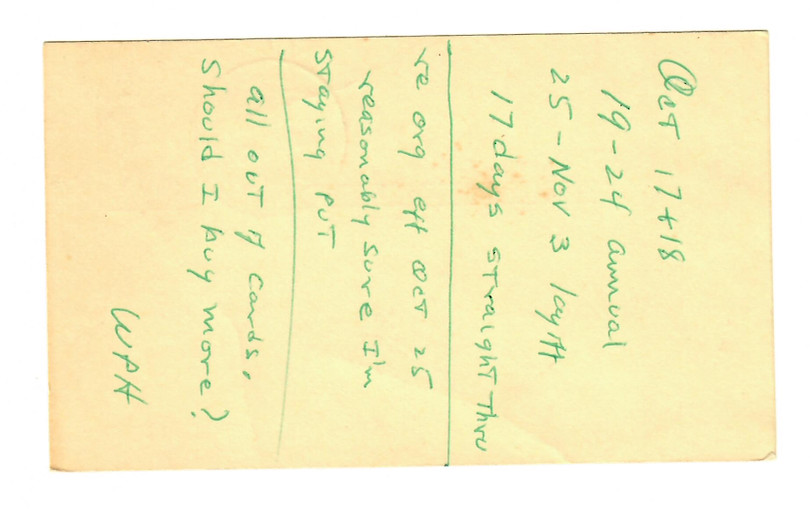 Oct 17+18
19-24 annual
25-Nov 3 layoff
17 days straight thru
re org eff Oct 25
reasonably sure I'm
staying put
all out of cards,
should I buy more?
WPH